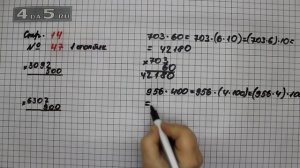 4DS.RU
Стор. 14
№ 47 1 столбик
× 3092
500
× 6307
900
703 · 60 = 703 · (6 · 10) = (703 · 6) · 10 =
= 42180
× 703
60
42180
956 · 400 = 956 · (4 · 100) = (956 · 4) · 100
=